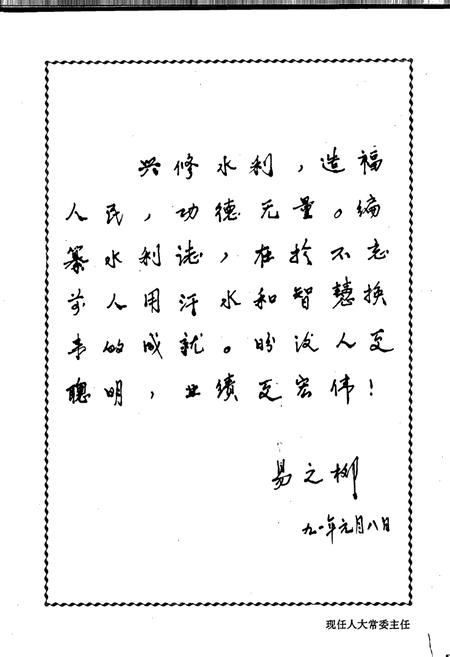 兴修水利，造福
人民，功德无量。编
纂水利志，在于不忘
前人用汗水和智慧换
来的成就。盼后人更
聪明，业绩更宏伟！
易之柳
九一年元月八日
现任人大常委主任